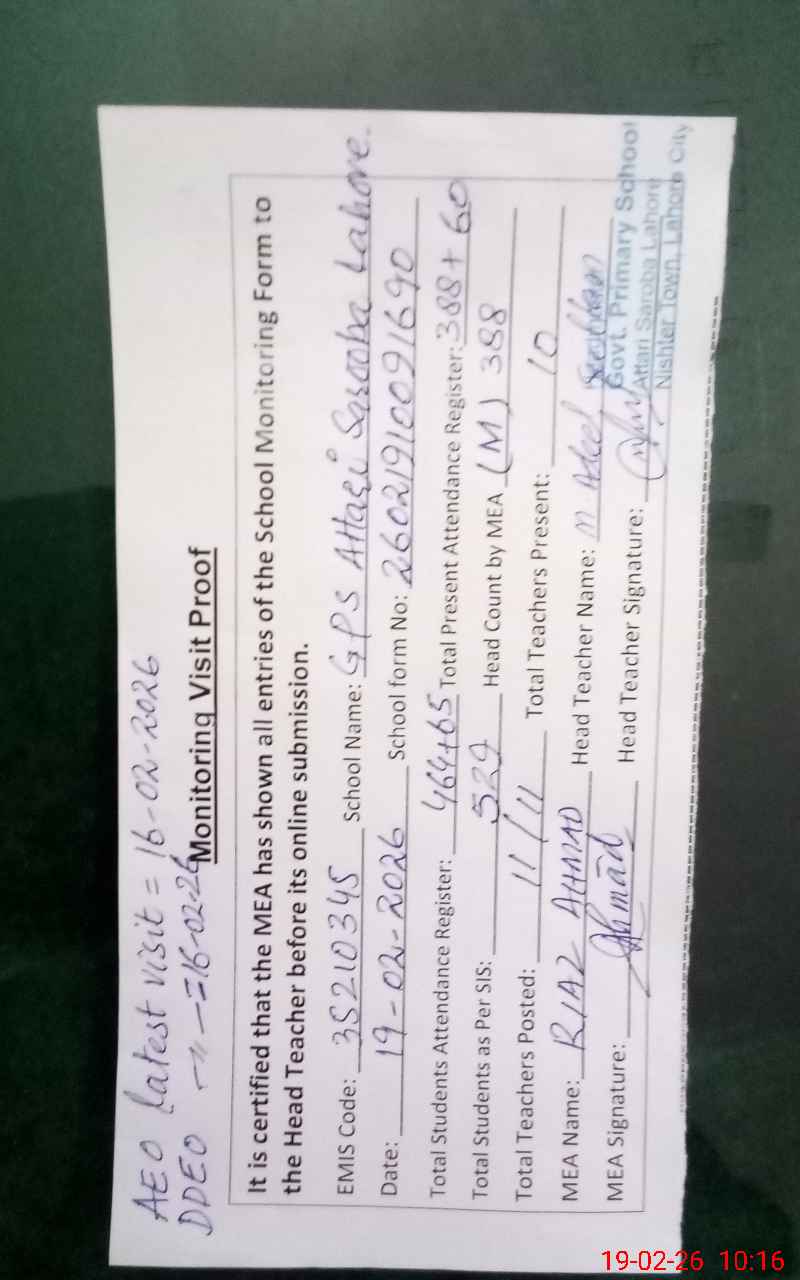 AEO Latest visit = 16-02-2026
DDEO —〃— = 16-02-26
Monitoring Visit Proof
It is certified that the MEA has shown all entries of the School Monitoring Form to
the Head Teacher before its online submission.
EMIS Code: 35210345 School Name: GPS Attari Sarooba Lahore.
Date: 19-02-2026 School form No: 260219100091690
Total Students Attendance Register: 464+65 Total Present Attendance Register: 388+60
Total Students as Per SIS: 529 Head Count by MEA (M) 388
Total Teachers Posted: 11/11 Total Teachers Present: 10
MEA Name: RIAZ AHMAD Head Teacher Name: M Adeel
MEA Signature: Ahmad Head Teacher Signature:
Govt. Primary School
Attari Saroba Lahore
Nishter Town, Lahore City
19-02-26 10:16